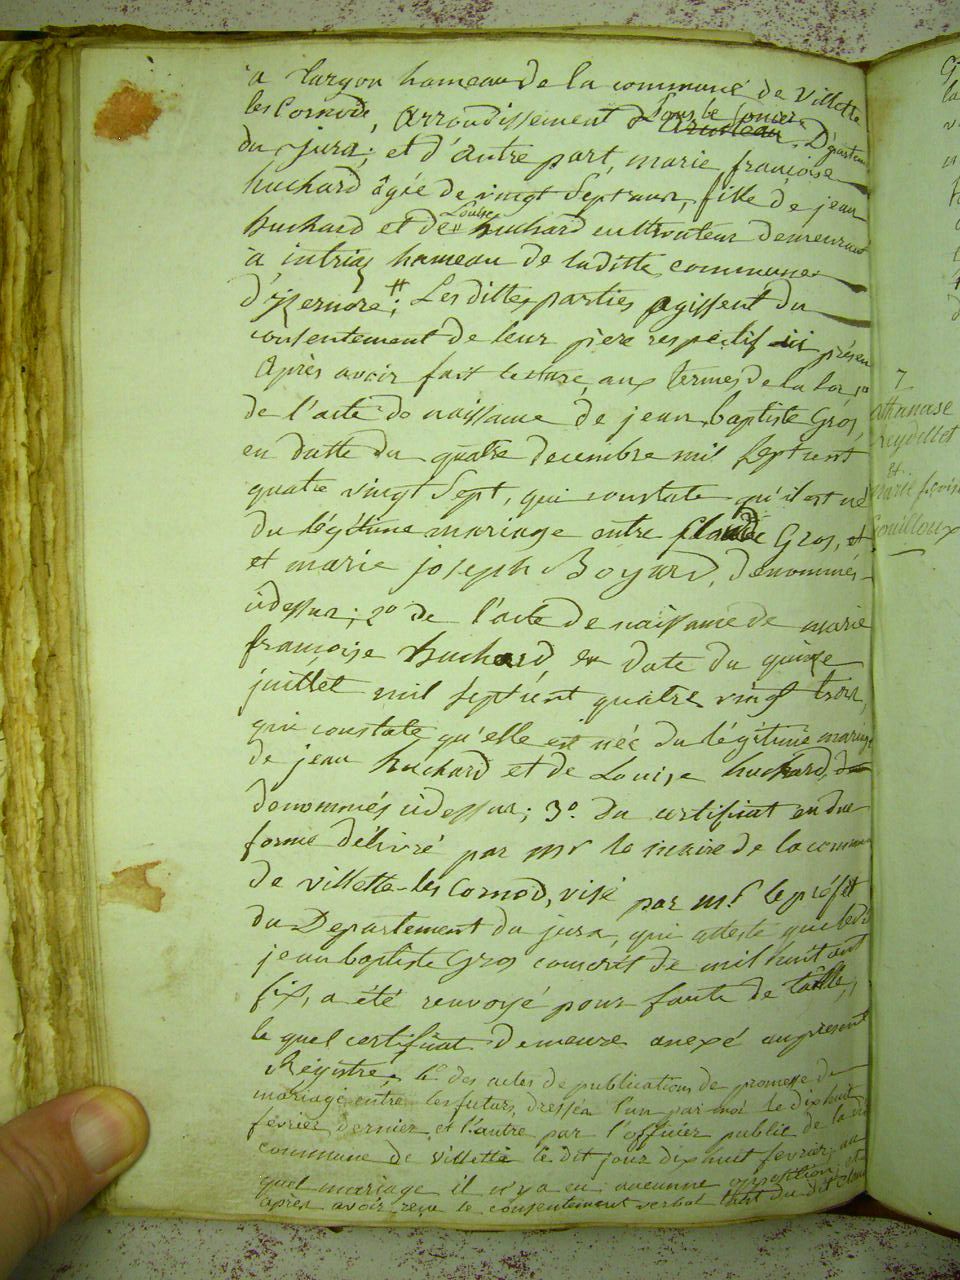 a Targon hameau de la commune de Villette
les Cornod, arrondissement de Lons le Saunier Départem
du jura; et d'autre part, marie françoise
huchard âgée de vingt Sept ans, fille de jean
huchard et de Louise huchard cultivateur demeurant
à intriaz hameau de laditte commune
d'izernore; # Les dittes parties agissent du
consentement de leur père respectif ici présen
Après avoir fait lecture, aux termes de la loi, 1o
de l'acte de naissance de jean baptiste Gros,
en datte du quatre decembre mil Septcent
quatre vingt Sept, qui constate qu'il est né
du légitime mariage entre Claude Gros, et
et marie joseph Boyard, denommés
cidessus; 2o de l'acte de naissance de marie
françoise huchard, en date du quinze
juillet mil Septcent quatre vingt trois,
qui constate qu'elle est née du légitime mariage
de jean huchard et de Louise huchard,
denommés cidessus; 3o. du certificat en due
forme délivré par mr le maire de la commune
de villette-les Cornod, visé par mr le préfet
du Departement du jura, qui atteste que ledit
jean baptiste Gros conscrit de mil huit cent
six, a été renvoyé pour faute de taille,
le quel certificat demeure anexé au present
Régistre, 4o des actes de publications de promesse de
mariage entre les futurs, dressés l'un par moi le dixhuit
février dernier, et l'autre par l'officier public de la
commune de villette le dit jour dix huit fevrier, au
quel mariage il n'y a eu aucunne opposition, et
après avoir reçu le consentement verbal tant du dit Claude
7
athanase
Reydellet
et
marie fçoise
Gouilloux